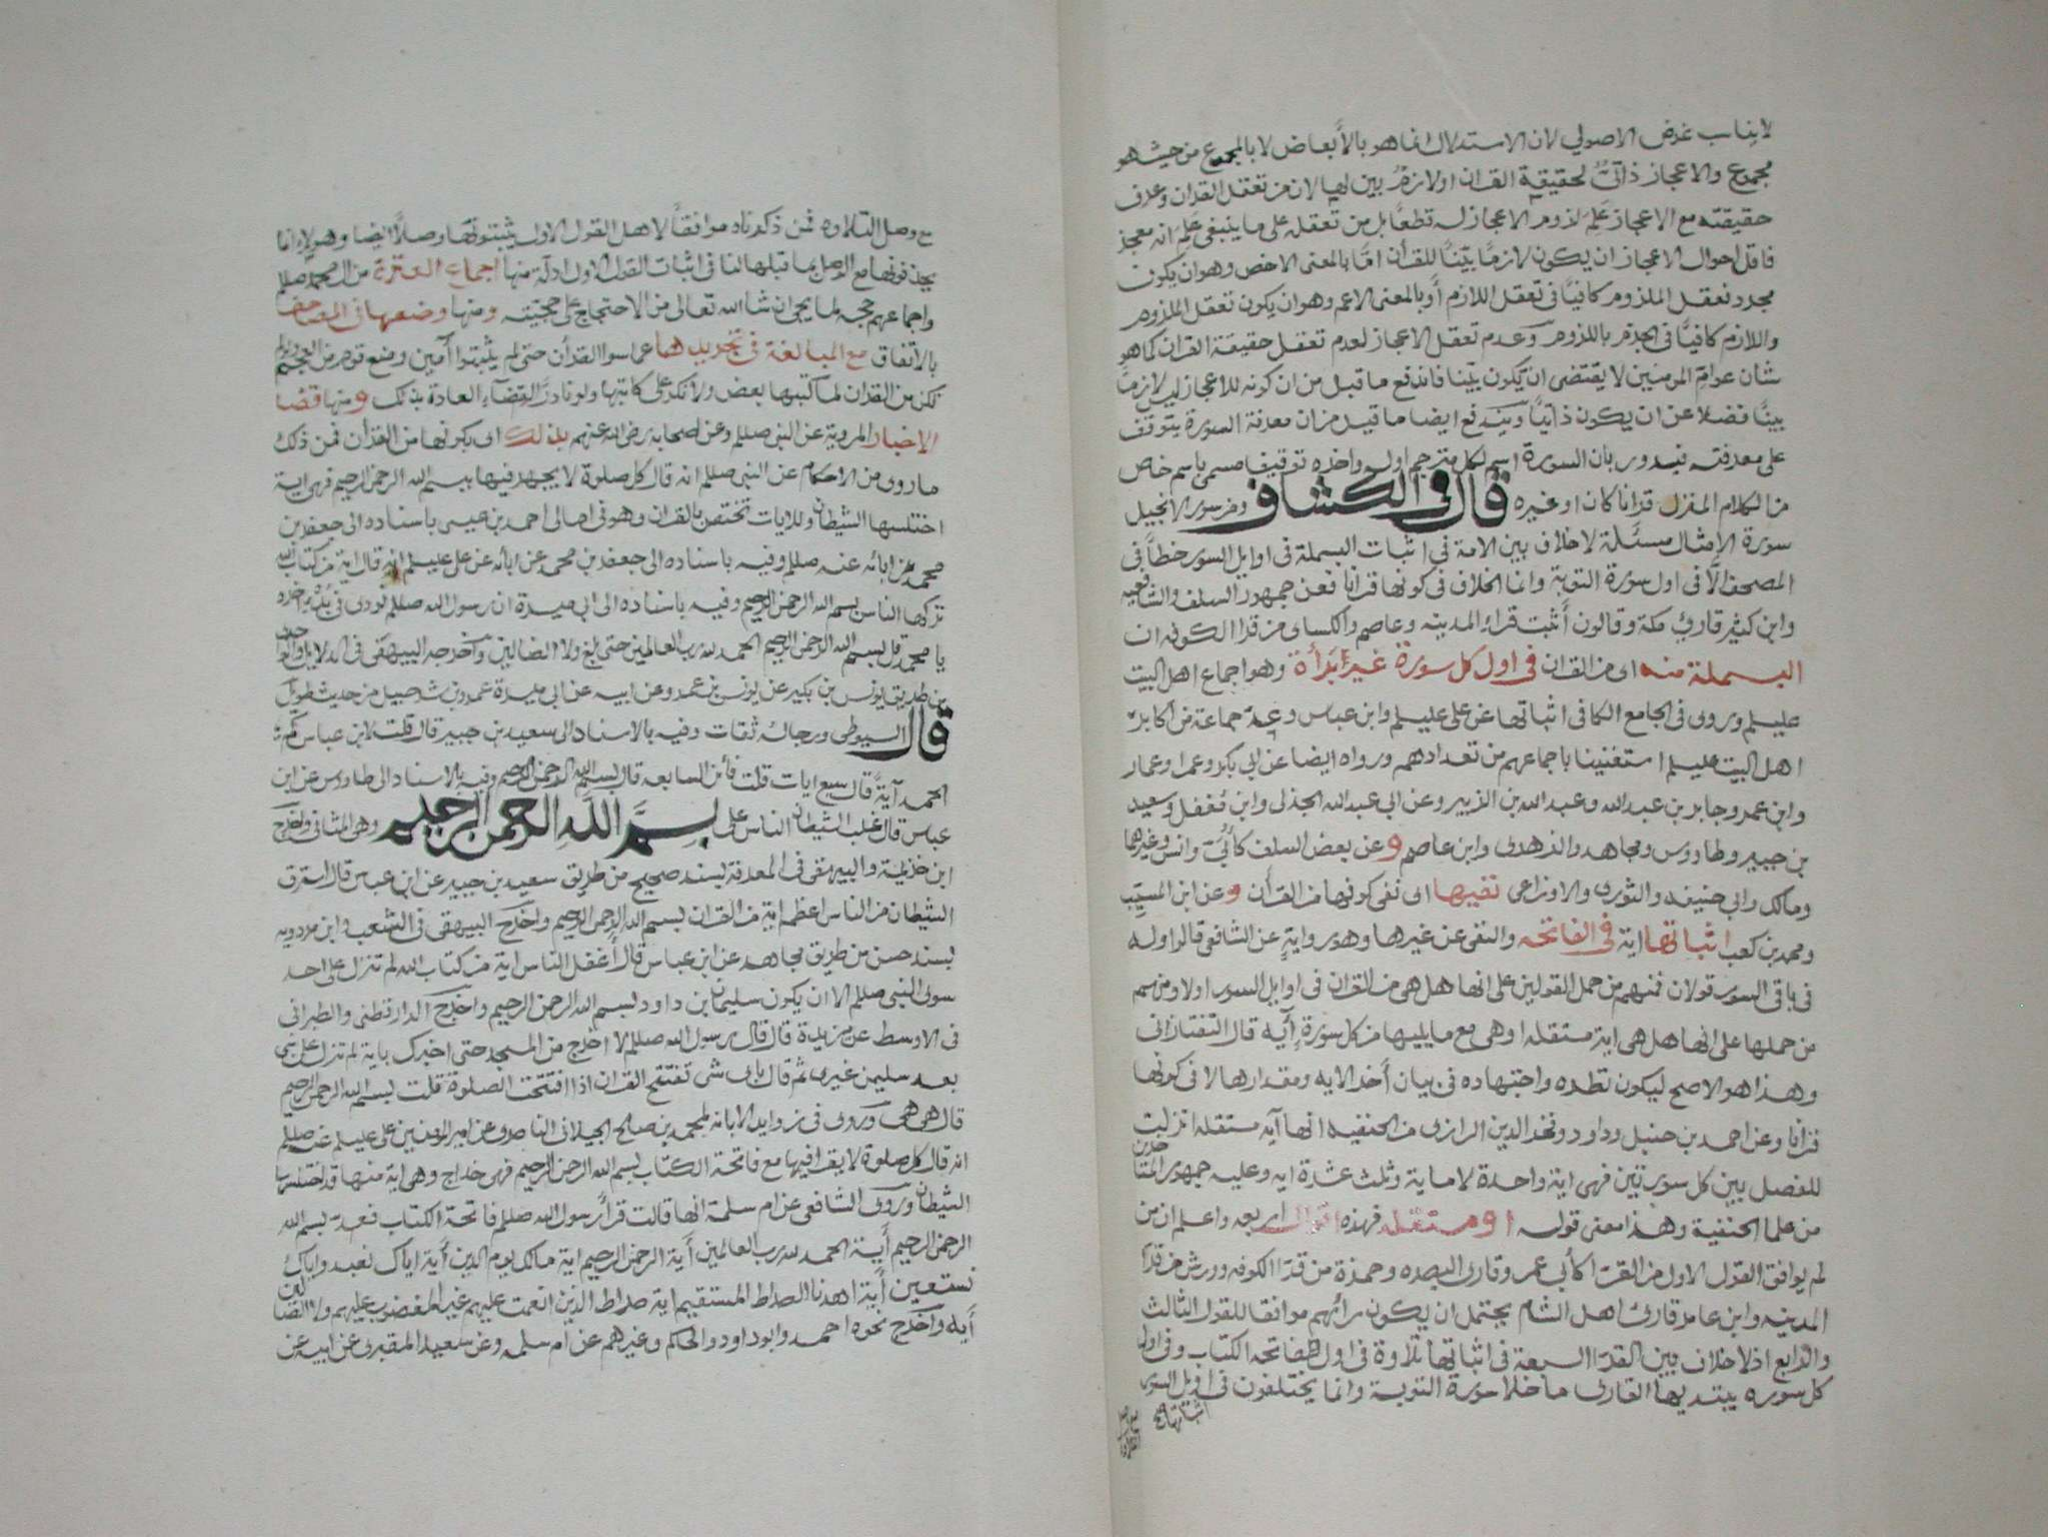 لا يناسب غرض الاصولي لان الاستدلال انما هو بالأبعاض لا بالمجموع من حيث هو
مجموع والاعجاز ذاتيٌّ لحقيقة القران او لازمٌ بين لها لان من تعقل القران وعرف
حقيقته مع الاعجاز عَلِمَ لزوم الاعجاز له قطعًا بل من تعقله على ما ينبغي عَلِمَ انه معجز
فاقل احوال الاعجاز ان يكون لازمًا بيّنًا للقرأن امّا بالمعنى الاخص وهو ان يكون
مجرد تعقل الملزوم كافيًا في تعقل اللازم أو بالمعنى الاعم وهو ان يكون تعقل الملزوم
واللازم كافيًا في الجزم باللزوم وعدم تعقل الاعجاز لعدم تعقل حقيقة القران كما هو
شان عوام المومنين لا يقتضي ان يكون بيّنا فاندفع ما قيل من ان كونه للاعجاز ليس لازمًا
بينًا فضلا عن ان يكون ذاتيًا ويندفع ايضا ما قيل من ان معرفة السورة يتوقف
على معرفته فيدور بان السورة اسم لكل مترجم اوله واخره توقيفا مسمى باسم خاص
من الكلام المنزل قرانا كان او غيره قال في الكشاف ومن سور الانجيل
سورة الامثال مسئلة لاخلاف بين الامة في اثبات البسملة في اوايل السور خطاً في
المصحف الّا في اول سورة التوبة وانما الخلاف في كونها قرانا فعن جمهور السلف والشافعيه
وابن كثير قارئ مكة وقالون أثبت قراء المدينه وعاصم والكساى من قرا الكوفه ان
البسملة منه اى من القران في اول كل سورة غير برأة وهو اجماع اهل البيت
عليهلم وروى في الجامع الكافي اثباتها عن علي عليهلم وابن عباس وعِدة جماعة من اكابر
اهل البيت عليهلم استغنينا باجماعهم من تعدادهم ورواه ايضا عن ابي بكر وعمر وعمار
وابن عمر وجابر بن عبدالله وعبدالله بن الزبير وعن ابي عبدالله الجدلي وابن مُغفل وسعيد
بن جبير وطاووس ومجاهد والزهري وابن عاصم و عن بعض السلف كأُبَيّ وانس وغيرهما
ومالك وابي حنيفه والثوري والاوزاعي نفيها اى نفى كونها من القرأن و عن ابن المسيّب
ومحمد بن كعب اثباتها اية في الفاتحه والنفى عن غيرها وهو رواية عن الشافعي قالوا وله
في باقي السور قولان فمنهم من حمل القولين على انها هل هي من القران في اوايل السور اولا ومنهم
من حملها على انها هل هي اية مستقله او هي مع ما يليها من كل سورة أيه قال التفتازانى
وهذا هو الاصح ليكون نظره واجتهاده في بيان أخر الايه ومقدارها لا في كونها
قرانًا وعن احمد بن حنبل وداود وفخر الدين الرازى من الحنفيه انها آيه مستقله انزلت
للفصل بين كل سورتين فهي اية واحدة لا ماية وثلث عشرة ايه وعليه جمهور المتاخرين
من علما الحنفية وهذا معنى قوله او مستقله فهذه اقوال اربعه واعلم ان من
لم يوافق القول الاول من القرّا كأبي عمر وقارى البصره وحمزة من قرّا الكوفه وورش من قرّا
المدينه وابن عامر قارئ اهل الشام يحتمل ان يكون رائهم موافقا للقول الثالث
والرّابع اذ لا خلاف بين القرّا السبعة في اثباتها تلاوة في اول فاتحة الكتاب وفي اول
كل سوره يبتديها القارى ما خلا سورة التوبة وانما يختلفون في اوايل السور
اثباتها
مع وصل التلاوه فمن ذكرناه موافقاً لاهل القول الاول يثبتونها وصلاً ايضا وهولاء انما
يحذفونها مع الوصل بما قبلها لنا في اثبات القول الاول ادلة منها اجماع العترة من ال محمد صللم
واجماعهم حجه لما يجى ان شا الله تعالى من الاحتجاج على حجيته ومنها وضعها في المصاحف
بالاتفاق مع المبالغة في تجريدها عما سوا القرأن حتى لم يثبتوا آمين ومنع قوم من العجم ولو لم
تكن من القران لما كتبها بعض ولأنكر على كاتبها ولو نادرًا لقضآء العادة بذلك ومنها قضا
الاخبار المروية عن النبي صللم وعن الصحابه رضي الله عنهم بذلك اى بكونها من القرأن فمن ذلك
ما روى من الاحكام عن النبي صللم انه قال كل صلوة لا يجهر فيها ببسم الله الرحمن الرحيم فهي اية
اختلسها الشيطان وللايات تختص بالقران وهو في امالي احمد بن عيسى باسناده الى جعفر بن
محمد عن ابائه عنه صللم وفيه باسناده الى جعفر بن محمد عن ابائه عن علي عليهلم انه قال اية من كتاب الله
تركها الناس بسم الله الرحمن الرحيم وفيه باسناده الى ابي ميسرة ان رسول الله صللم نودى في بُدُوِّ امره
يا محمد قل بسم الله الرحمن الرحيم الحمد لله رب العالمين حتى بلغ ولا الضالين وأخرجه البيهقى في الدلايل والواحدى
من طريق يونس بن بكير عن يونس بن عمرو عن ابيه عن ابي ميسرة عمرو بن شرحبيل من حديث طويل
قال السيوطى ورجاله ثقات وفيه بالاسناد الى سعيد بن جبير قال قلت لابن عباس كم
الحمد آيةً قال سبع ايات قلت فأين السابعه قال بسم الله الرحمن الرحيم وفيه بالاسناد الى طاووس عن ابن
عباس قال غلب الشيطان الناس على بسم الله الرحمن الرحيم وهي المثانى واخرج
ابن خزيمة والبيهقى في المعرفة بسند صحيح من طريق سعيد بن جبير عن ابن عباس قال استرق
الشيطان من الناس اعظم اية من القران بسم الله الرحمن الرحيم واخرج البيهقى في الشعب وابن مردويه
بسند حسن من طريق مجاهد عن ابن عباس قال أغفل الناس اية من كتاب الله لم تنزل على احد
سوى النبي صللم الا ان يكون سليمان بن داود بسم الله الرحمن الرحيم واخرج الدارقطنى والطبرانى
في الاوسط عن بريدة قال قال رسول الله صللم لا اخرج من المسجد حتى اخبرك باية لم تنزل على نبي
بعد سليمن غيرى ثم قال باى شى تفتتح القران اذا افتتحت الصلوة قلت بسم الله الرحمن الرحيم
قال هي هي وروى في زوايد الابانه لمحمد بن صالح الجيلانى الناصرى عن امير المومنين علي عليهلم عنه صللم
انه قال كل صلوة لا يقرا فيها مع فاتحة الكتاب بسم الله الرحمن الرحيم فهي خداج وهي اية منها قد اختلسها
الشيطان وروى الشافعي عن ام سلمة انها قالت قرأ رسول الله صللم فاتحة الكتاب فعد بسم الله
الرحمن الرحيم أية الحمد لله رب العالمين أية الرحمن الرحيم اية مالك يوم الدين أية اياك نعبد واياك
نستعين أية اهدنا الصراط المستقيم اية صراط الذين انعمت عليهم غير المغضوب عليهم ولا الضالين
أيه واخرج نحوه احمد وابو داود والحاكم وغيرهم عن ام سلمه وعن سعيد المقبرى عن ابيه عن